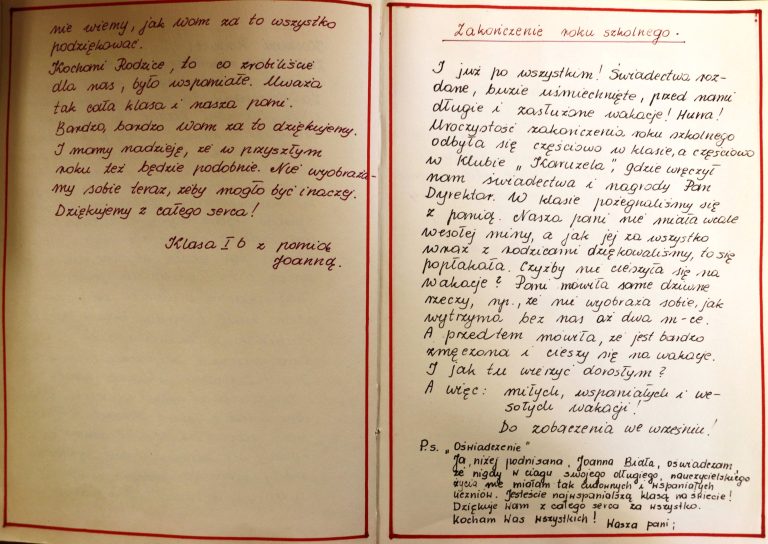 nie wiemy, jak wam za to wszystko
podziękować.
Kochani Rodzice, to co zrobiliście
dla nas, było wspaniałe. Uważa
tak cała klasa i nasza pani.
Bardzo, bardzo wam za to dziękujemy.
I mamy nadzieję, że w przyszłym
roku też będzie podobnie. Nie wyobraża-
my sobie teraz, żeby mogło być inaczej.
Dziękujemy z całego serca!
Klasa I b z panią
Joanną.
Zakończenie roku szkolnego.
I już po wszystkim! Świadectwa roz-
dane, buzie uśmiechnięte, przed nami
długie i zasłużone wakacje! Hurra!
Uroczystość zakończenia roku szkolnego
odbyła się częściowo w klasie, a częściowo
w Klubie „Karuzela", gdzie wręczył
nam świadectwa i nagrody Pan
Dyrektor. W klasie pożegnaliśmy się
z panią. Nasza pani nie miała wcale
wesołej miny, a jak jej za wszystko
wraz z rodzicami dziękowaliśmy, to się
popłakała. Czyżby nie cieszyła się na
wakacje? Pani mówiła same dziwne
rzeczy, np., że nie wyobraża sobie, jak
wytrzyma bez nas aż dwa m-ce.
A przedtem mówiła, że jest bardzo
zmęczona i cieszy się na wakacje.
I jak tu wierzyć dorosłym?
A więc: miłych, wspaniałych i we-
sołych wakacji!
Do zobaczenia we wrześniu!
P.s. „Oświadczenie"
Ja, niżej podpisana, Joanna Biała, oświadczam,
że nigdy w ciągu swojego długiego, nauczycielskiego
życia nie miałam tak cudownych i wspaniałych
uczniów. Jesteście najwspanialszą klasą na świecie!
Dziękuję Wam z całego serca za wszystko.
Kocham Was wszystkich! Wasza pani;